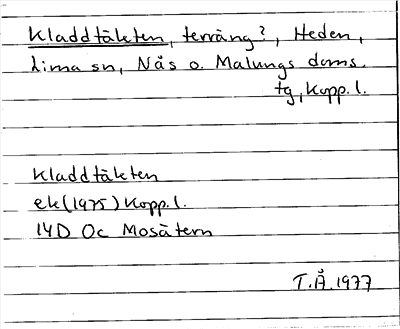 Kladdtäkten, terräng?, Heden,
Lima sn, Nås o. Malungs doms.
tg, Kopp. l.
Kladdtäkten
ek (1975) Kopp. l.
14D Oc Mosätern
T.Å. 1977